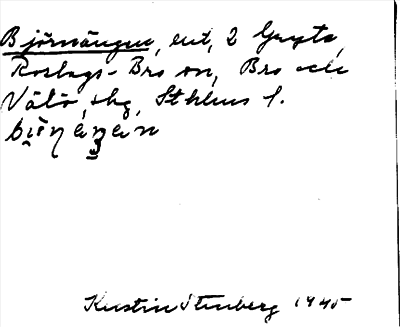 Björnängen, ent, 2 Gryta,
Roslags-Bro sn, Bro och
Vätö, shg, Sthlms l.
Kerstin Stenberg 1945